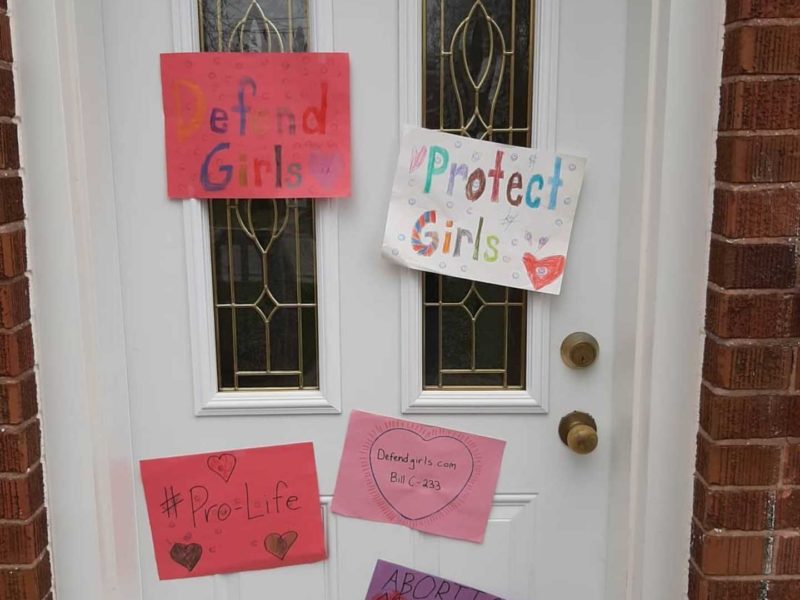 Defend
Girls
Protect
Girls
#Pro-Life
Defendgirls.com
Bill C-233